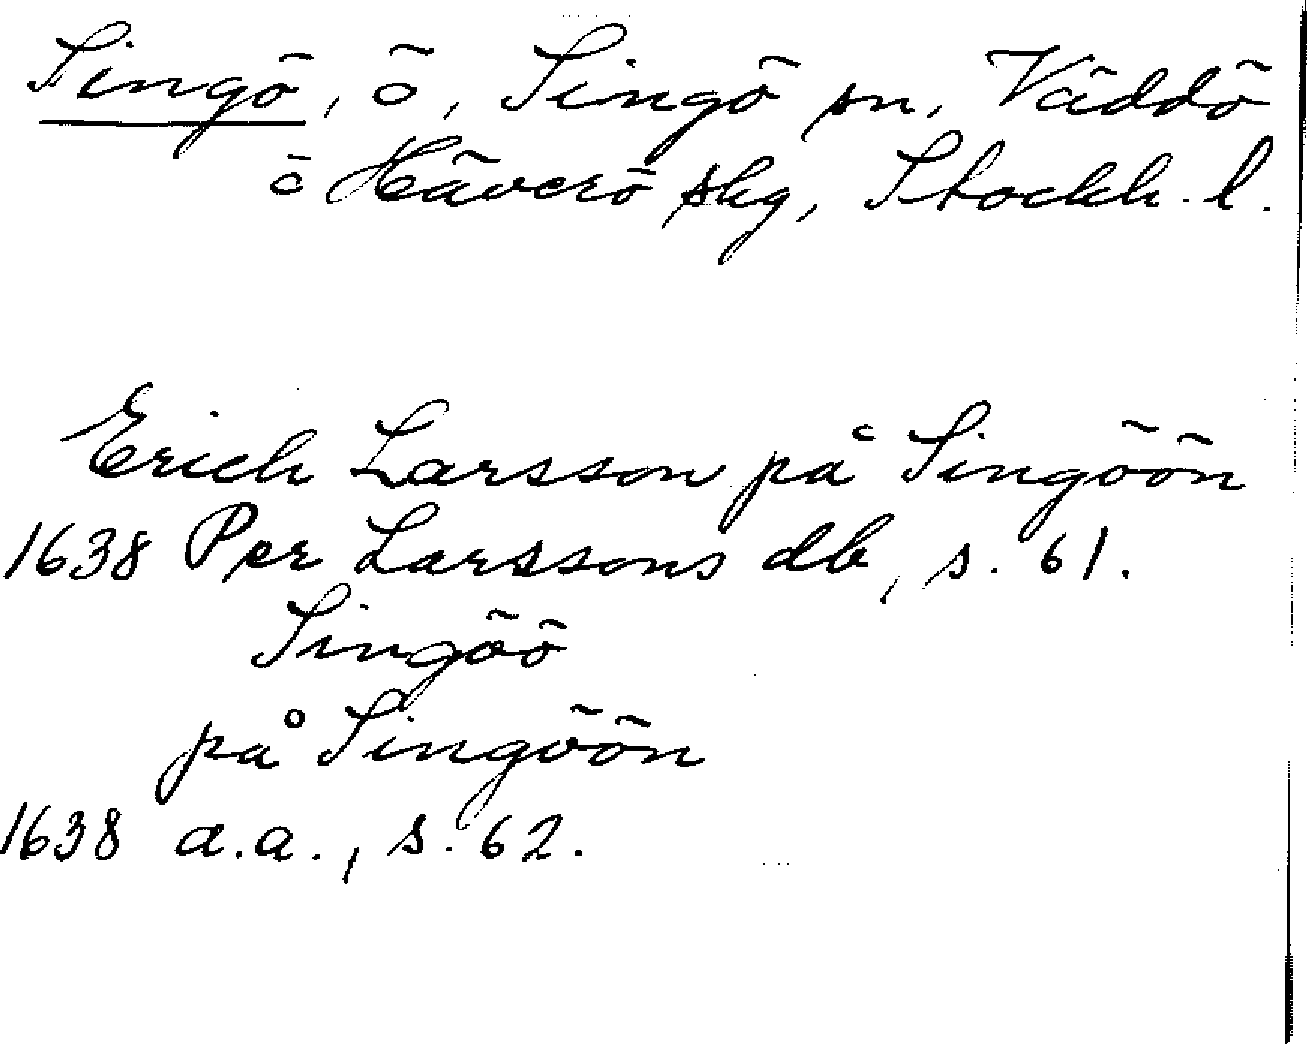 Singö, ö, Singö sn, Väddö
o Häverö skg, Stockh. l.
Erich Larsson på Singöön
1638 Per Larssons db, s. 61.
Singöö
på Singöön
1638 a.a., s. 62.